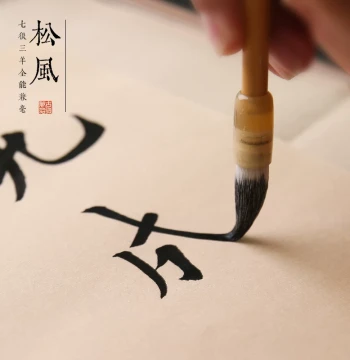 松風
七狼三羊全能兼毫